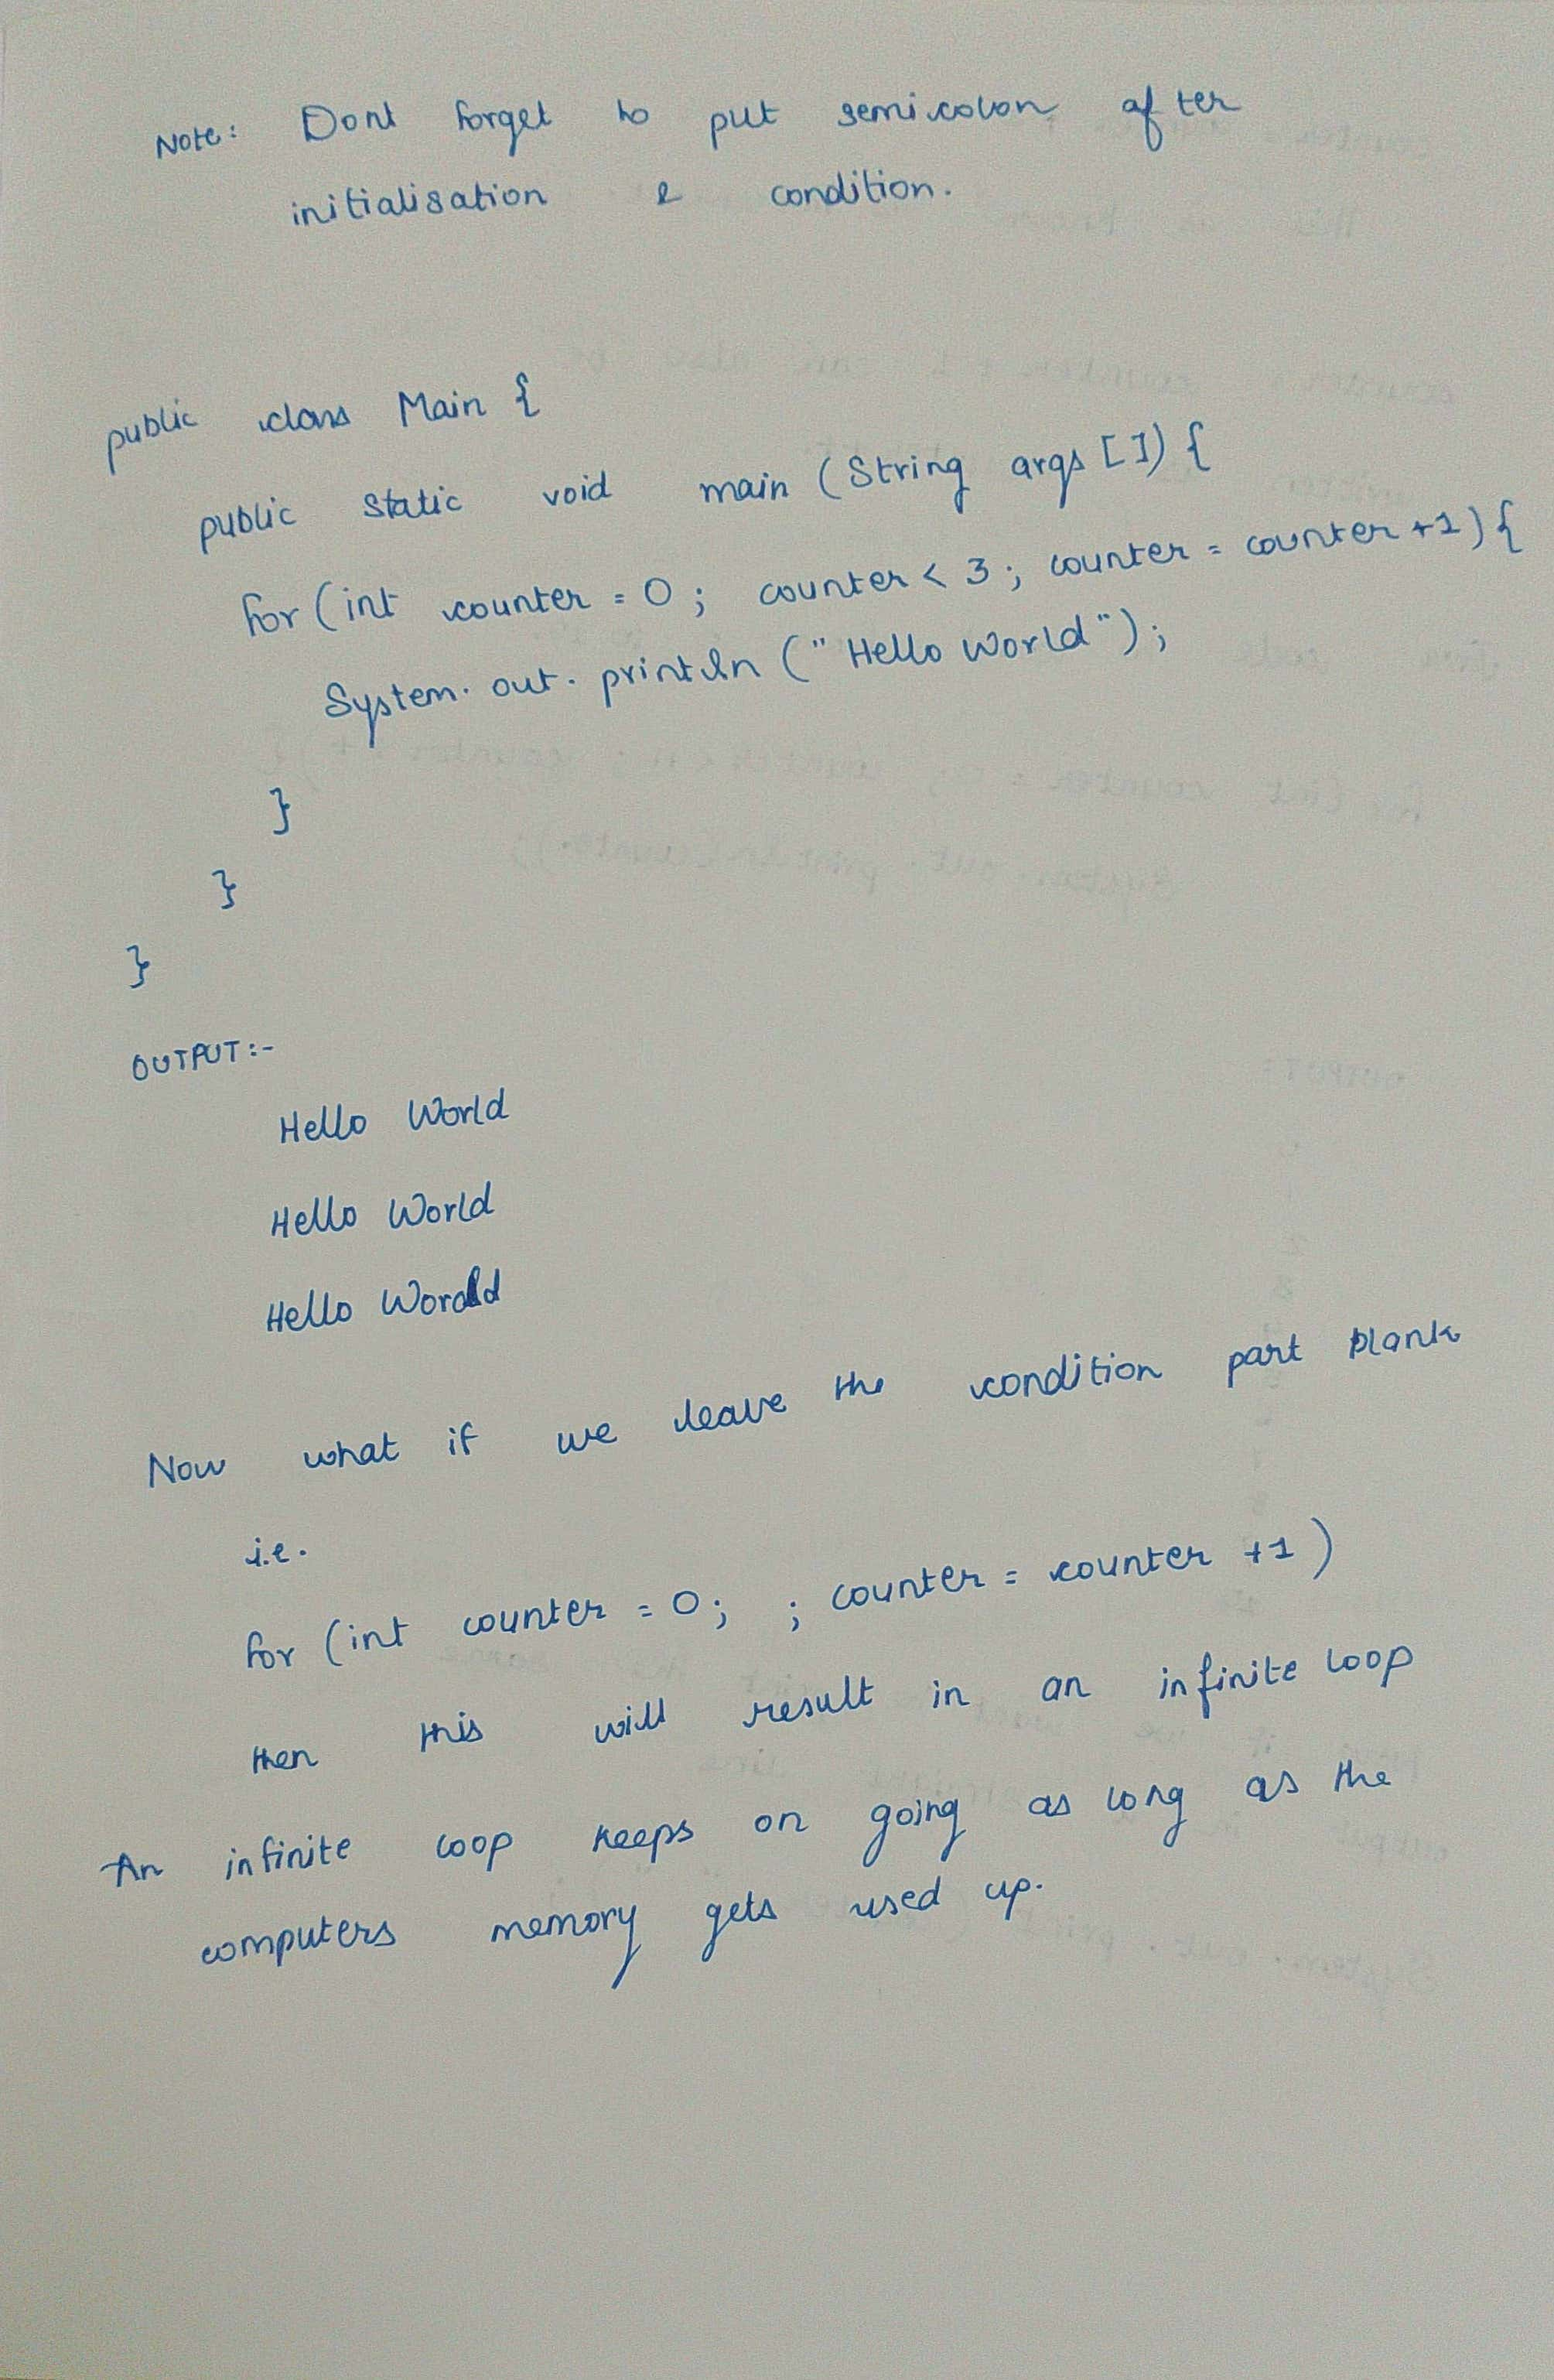 Note: Dont forget to put semicolon after
initialisation & condition.
public class Main {
public static void main (String args []) {
for (int counter = 0; counter < 3; counter = counter +1) {
System. out. println ("Hello World");
}
}
}
OUTPUT:-
Hello World
Hello World
Hello World
Now what if we leave the condition part blank
i.e.
for (int counter = 0; ; counter = counter +1)
then this will result in an infinite loop
An infinite loop keeps on going as long as the
computers memory gets used up.